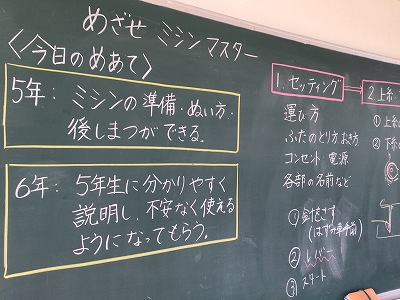 めざせ ミシンマスター
〈今日のめあて〉
5年：ミシンの準備・ぬい方・
後しまつができる。
6年：5年生に分かりやすく
説明し、不安なく使える
ようになってもらう。
1.セッティング
運び方
ふたのとり方、おき方
コンセント・電源
各部の名前など
① 針をさす
(はずみ車手前)
②
③ スタート
2.上糸・
① 上糸
② 下糸